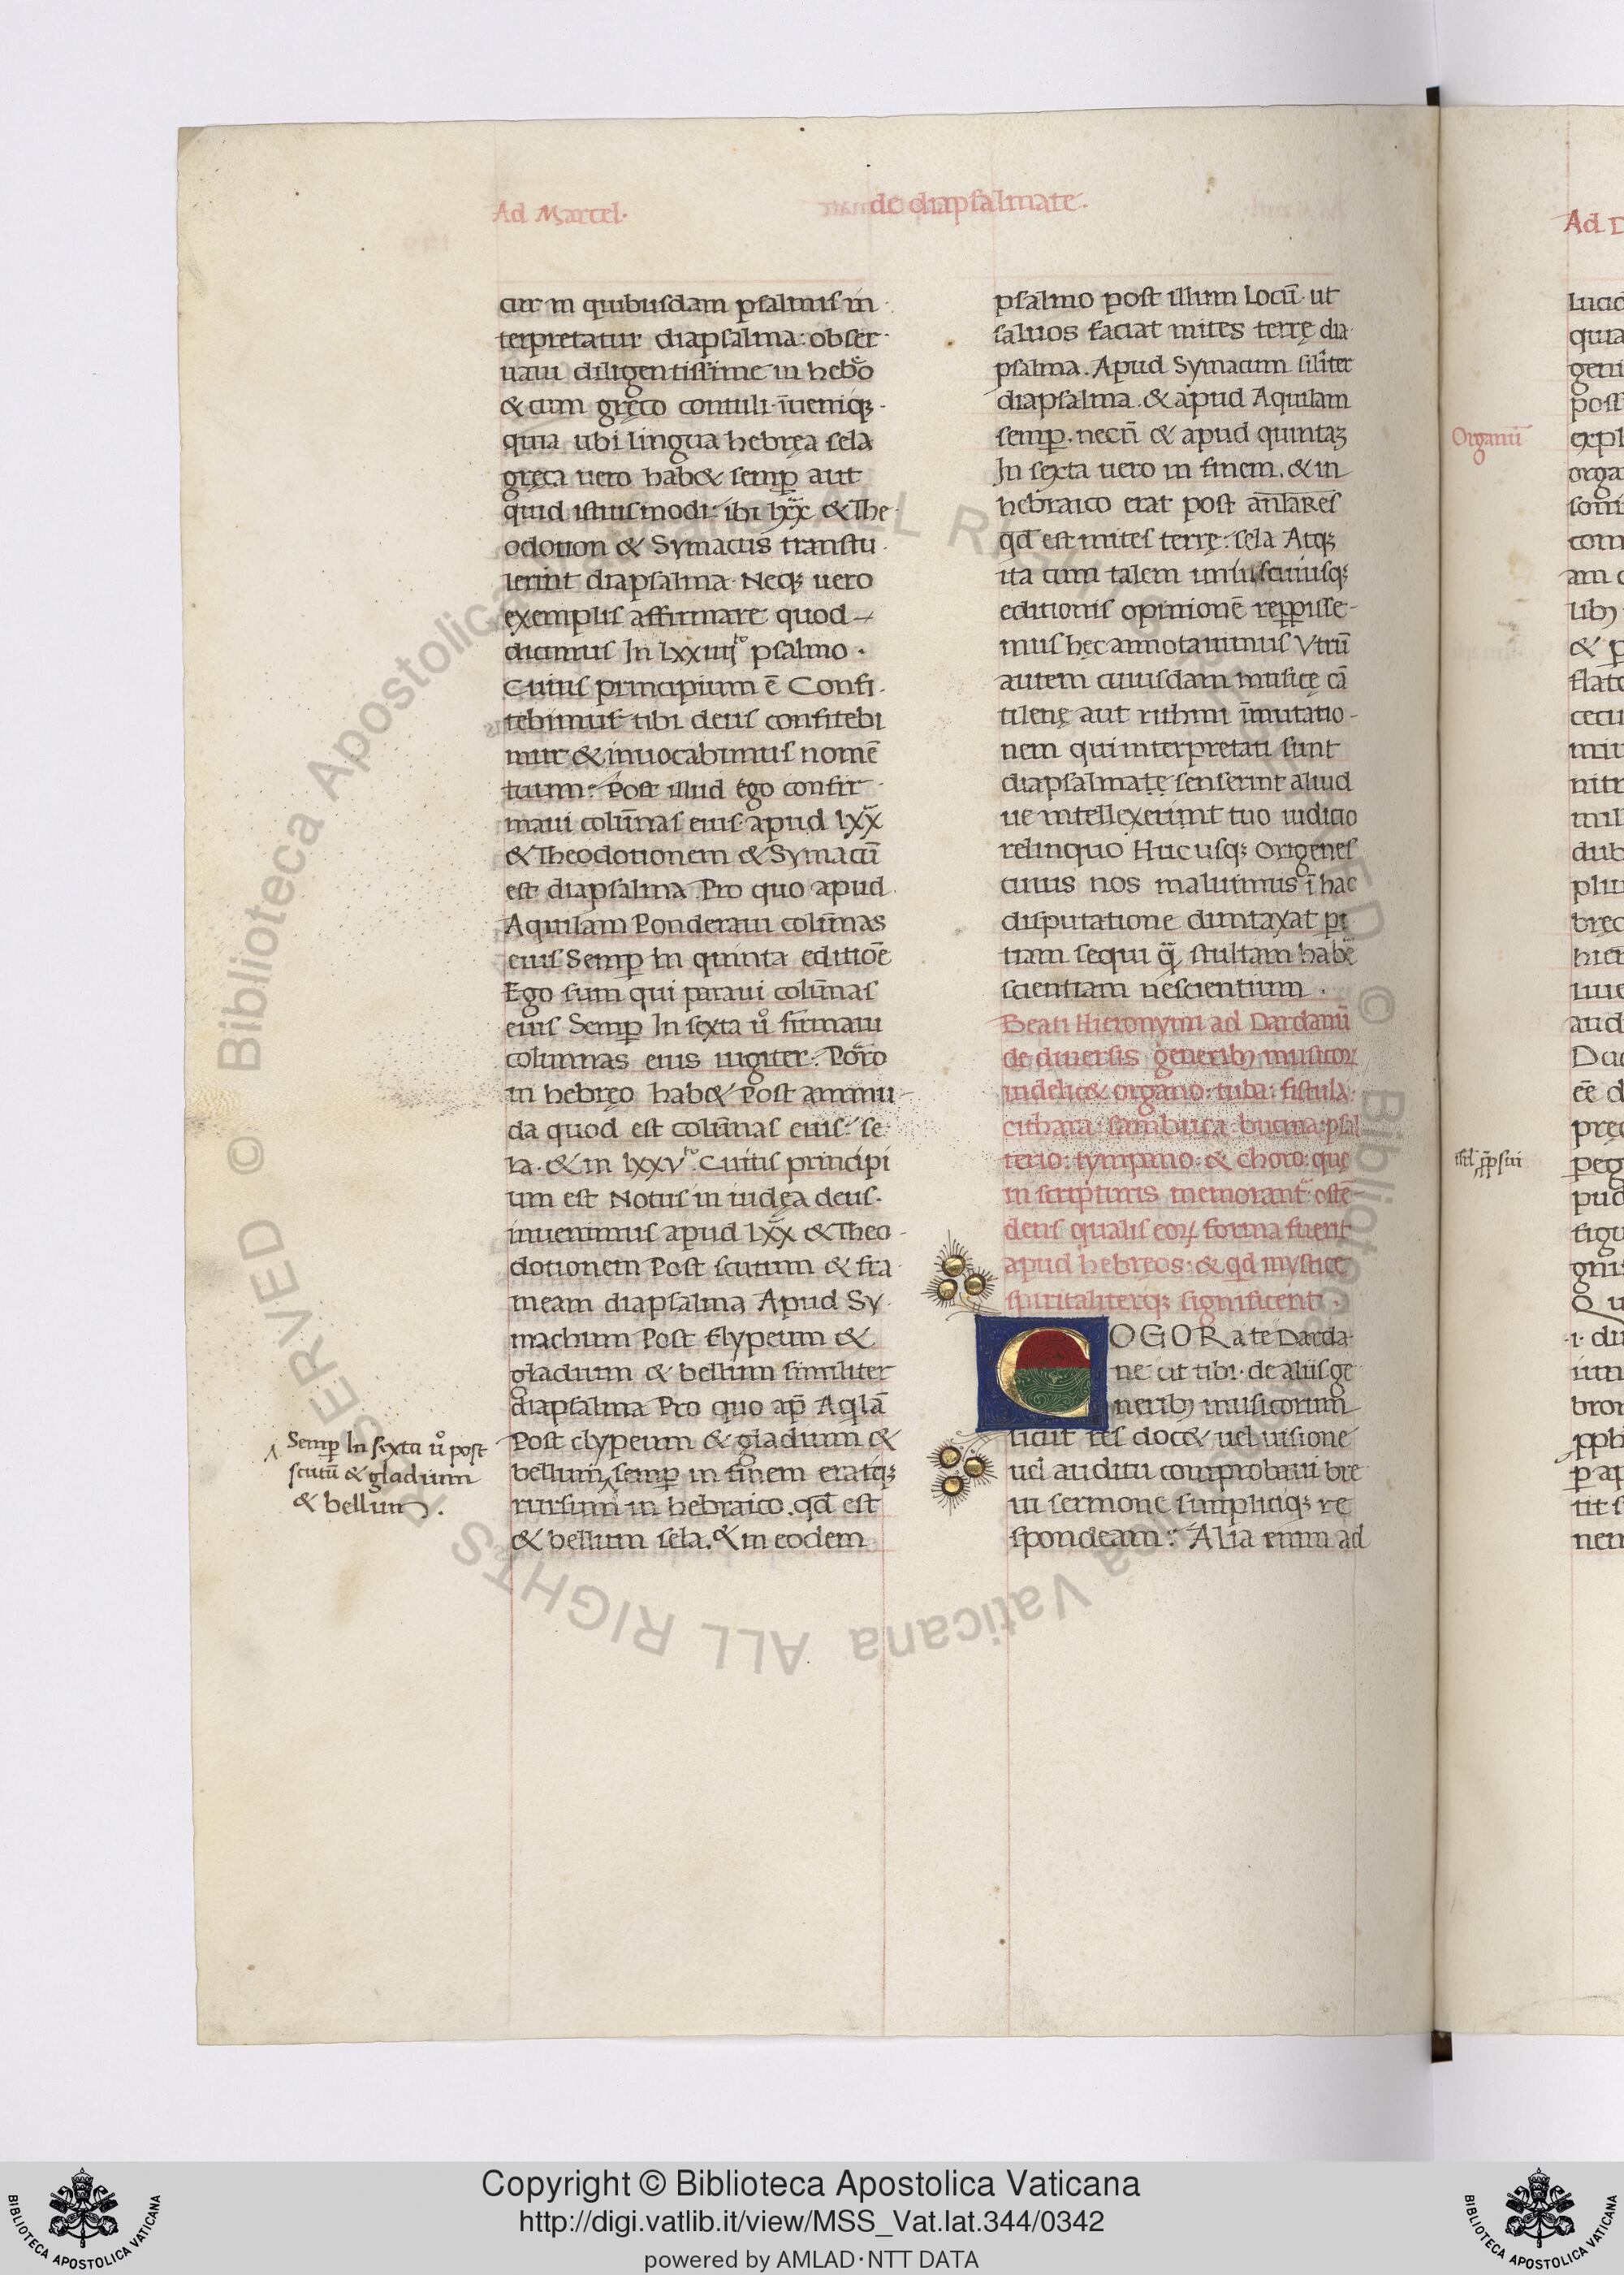 Ad Marcel.
de diapsalmate.
cur in quibusdam psalmis in
terpretatur diapsalma: obser
uaui diligentissime in hebr̃o
& cum gręco contuli. īueniq;
quia ubi lingua hebręa sela
gręca uero hab& semp̱ aut
quid istiusmodi: ibi lxx̃ & The
odotion & Symacus transtu
lerint diapsalma. Neq; uero
exemplis affirmare quod
dicimus In lxxiiij^to psalmo.
Cuius principium ē Confi
tebimur tibi deus confitebi
mur & inuocabimus nomē
tuum: Post illud ego confir
maui colūnas eius apud lxx̃
& Theodotionem & Symacū
est diapsalma Pro quo apud
Aquilam Ponderaui colūnas
eius Semp̱ In quinta editiōe
Ego sum qui paraui colūnas
eius Semp̱ In sexta ů firmaui
columnas eius iugiter. Porro
in hebręo hab& Post ammu
da quod est colūnas eius: se
la. & in lxxv^to. Cuius principi
um est Notus in iudęa deus.
inuenimus apud lxx̃ & Theo
dotionem Post scutum & fra
meam diapsalma Apud Sy
machum Post Clypeum &
gladium & bellum similiter
diapsalma Pro quo ap̄ Aq̇lā
Post clypeum & gladium &
bellum semp̱ in finem eratq;
rursum in hebraico. qđ est
& bellum sela. & in eodem
Semp̱ In sexta ů post
scutū & gladium
& bellum.
psalmo post illum locū. ut
saluos faciat mites terrę dia
psalma. Apud Symacum siliter
diapsalma. & apud Aquilam
semp̱. necn̄ & apud quintaʒ
In sexta uero in finem. & in
hebraico erat post anīares
qđ est mites terrę: sela Atq;
ita cum talem uniuscuiusq;
editionis opinionē repperisse
mus hęc annotauimus Vtrū
autem cuiusdam musicę cā
tilenę aut rithmi īmutatio
nem qui interpretati sunt
diapsalmatę senserint aliud
ue intellexerint tuo iudicio
relinquo Huc usq; Origenes
cuius nos maluimus ī hac
disputatione duntaxat pi
tiam sequi q̄ stultam habē
scientiam nescientium.
Beati Hieronymi ad Dardanū
de diuersis generibꝫ musicoꝝ
indelic& organo: tuba: fistula:
cithara: sambuca: bucina: psal
terio: tympano: & choro: quę
in scripturis memorant̃: ostē
dens qualis eoꝝ forma fuerit
apud hebręos: & qđ mysticę
spiritaliterq; significent.
COGOR a te Darda
ne ut tibi. de aliis ge
neribꝫ musicorum
licut res doc& uel uisione
uel auditu comprobaui bre
ui sermone simpliciq; re
spondeam: Alia enim ad
Organū
Copyright © Biblioteca Apostolica Vaticana
http://digi.vatlib.it/view/MSS_Vat.lat.344/0342
powered by AMLAD·NTT DATA
BIBLIOTECA APOSTOLICA VATICANA
BIBLIOTECA APOSTOLICA VATICANA